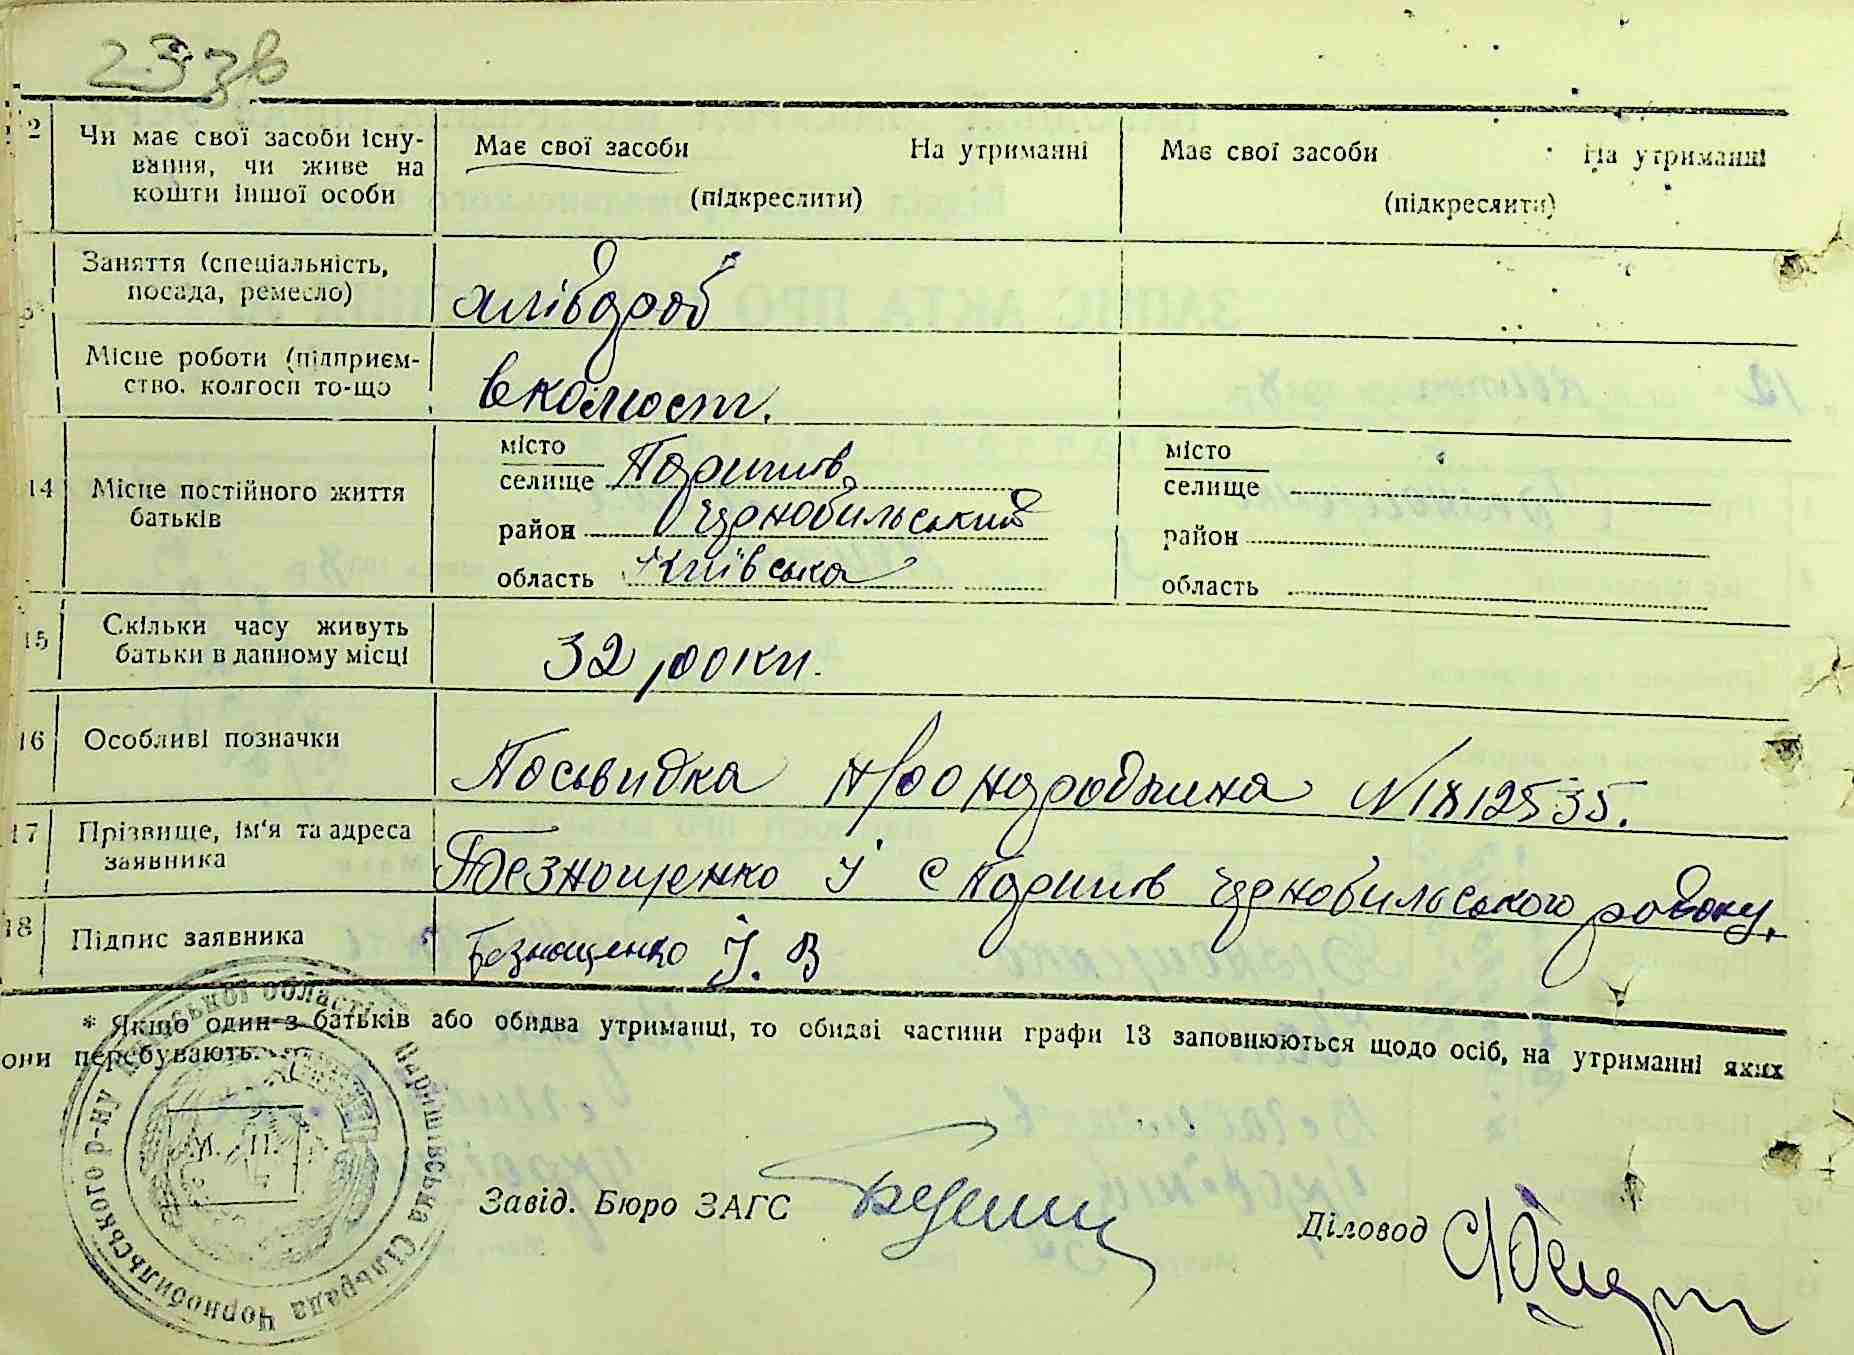 233в
2 Чи має свої засоби існу- Має свої засоби На утриманні Має свої засоби На утриманні
вання, чи живе на
кошти іншої особи (підкреслити) (підкреслити)
Заняття (спеціальність,
посада, ремесло) хлібороб
Місце роботи (підприєм-
ство, колгосп то-що в колгост.
14 Місце постійного життя
батьків
місто місто
селище Паришів селище
район Чорнобильський район
область Київська область
15 Скільки часу живуть
батьки в данному місці 32 роки.
16 Особливі позначки Посьвидка про народжина №1812535.
17 Прізвище, ім'я та адреса
заявника Безнощенко І с Паришів Чорнобильського району.
18 Підпис заявника Безнощенко І. В
* Якщо один з батьків або обидва утриманці, то обидві частини графи 13 заповнюються щодо осіб, на утриманні яких
они перебувають.
Київської області Паришівська Сільрада Чорнобильського р-ну
М. П.
Завід. Бюро ЗАГС
Діловод